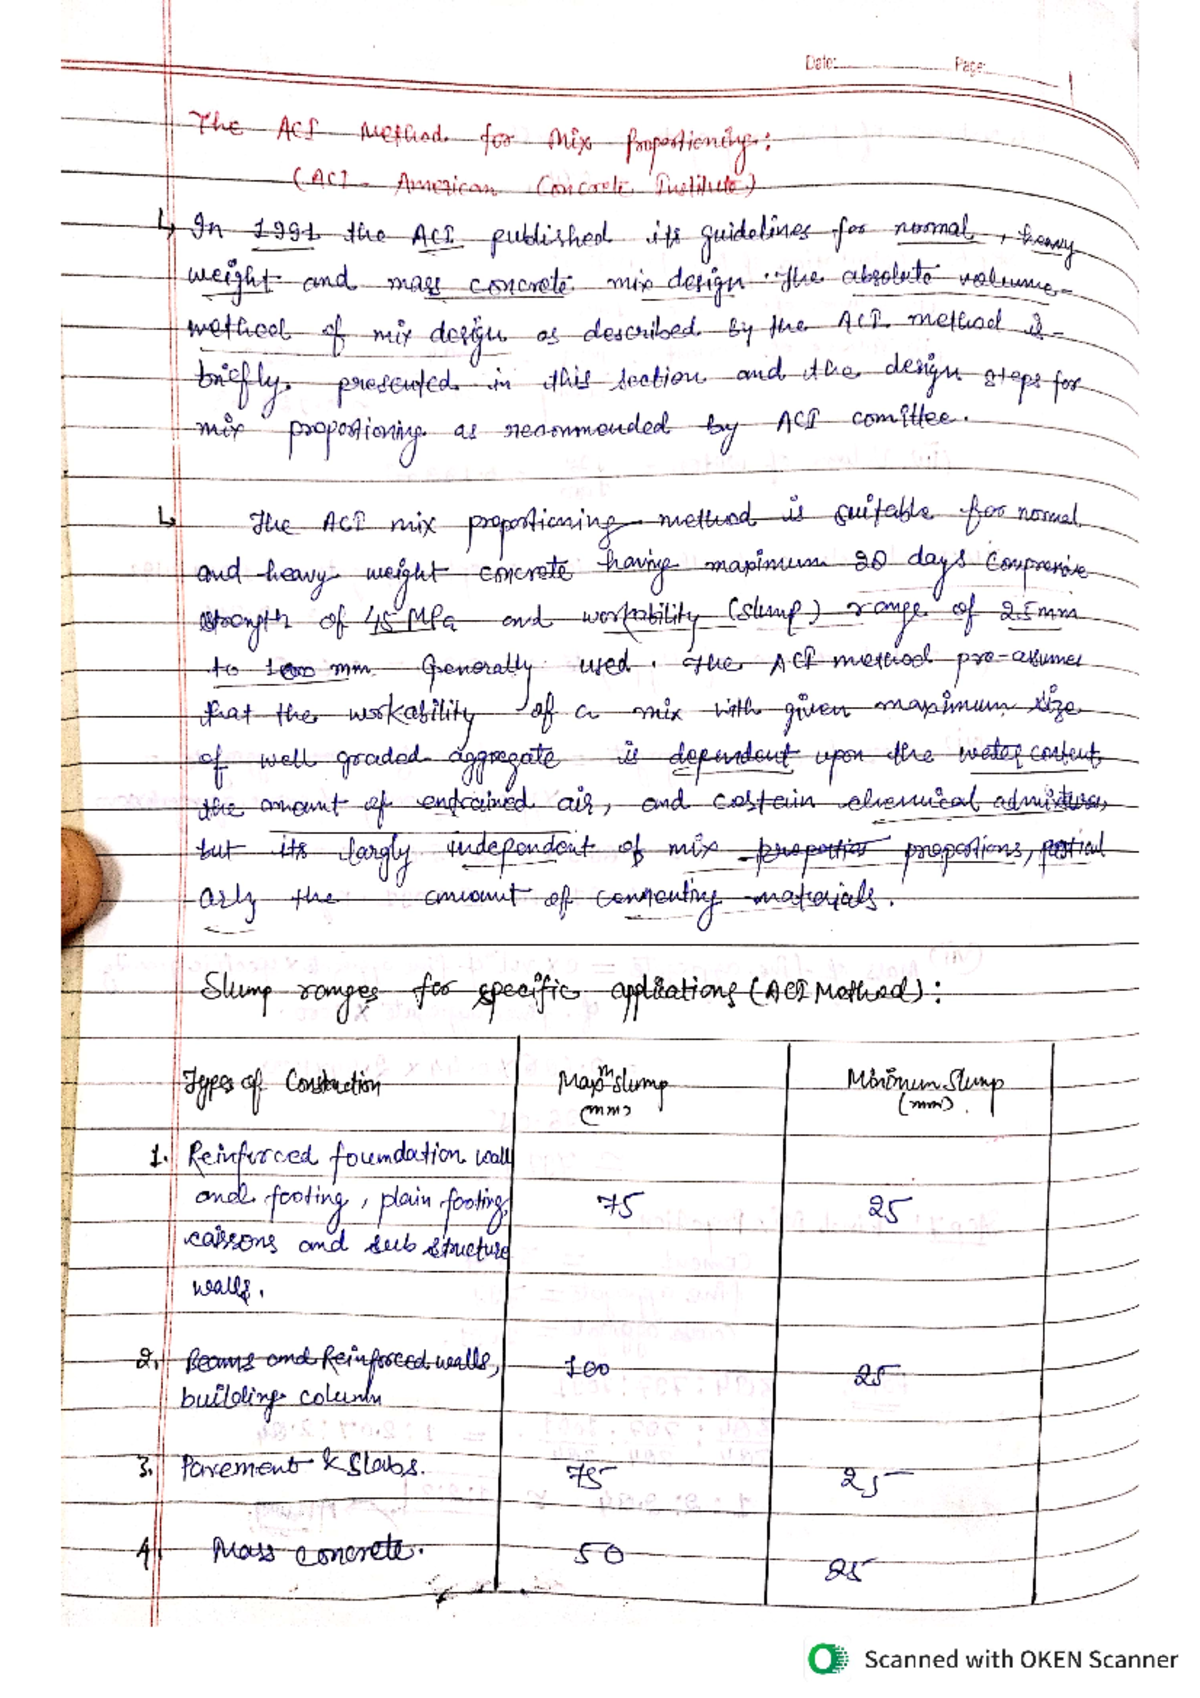 Date: Page:
The ACI Method for Mix Proportioning:
(ACI - American Concrete Institute)
↳ In 1991 the ACI published its guidelines for normal, heavy
weight and mass concrete mix design. The absolute volume
method of mix design as described by the ACI method is
briefly presented in this section and the design steps for
mix proportioning as recommended by ACI comittee.
↳ The ACI mix proportioning method is suitable for normal
and heavy weight concrete having maximum 20 days Compressive
strength of 45 MPa and workability (slump) range of 25mm
to 100 mm Generally used. The ACI method pre-assumes
that the workability of a mix with given maximum size
of well graded aggregate is dependent upon the water content,
the amount of entrained air, and certain chemical admixtures,
but its largly independent of mix proportions, particul
arly the amount of cementing materials.
Slump ranges for specific applications (ACI Method):
Types of Construction Maxm slump (mm) Minimum Slump (mm).
1. Reinforced foundation wall
and footing, plain footing, 75 25
caissons and sub structure
walls.
2. Beams and Reinforced walls, 100 25
building column
3. Pavement & Slabs. 75 25
4. Mass concrete. 50 25
Scanned with OKEN Scanner